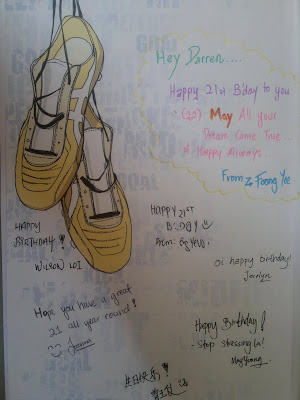 Hey Darren....
Happy 21st B'day to you
(22) May All your
Dream Come True...
& Happy Always...
From Foong Yee
HAPPY
BIRTHDAY!
WILSON LOI
HAPPY 21ST
B'DAY
From:
Oi happy birthday!
Jocelyn
Hope you have a great
21 all year round!
Happy Birthday!
- Stop stressing la!
生日快乐!